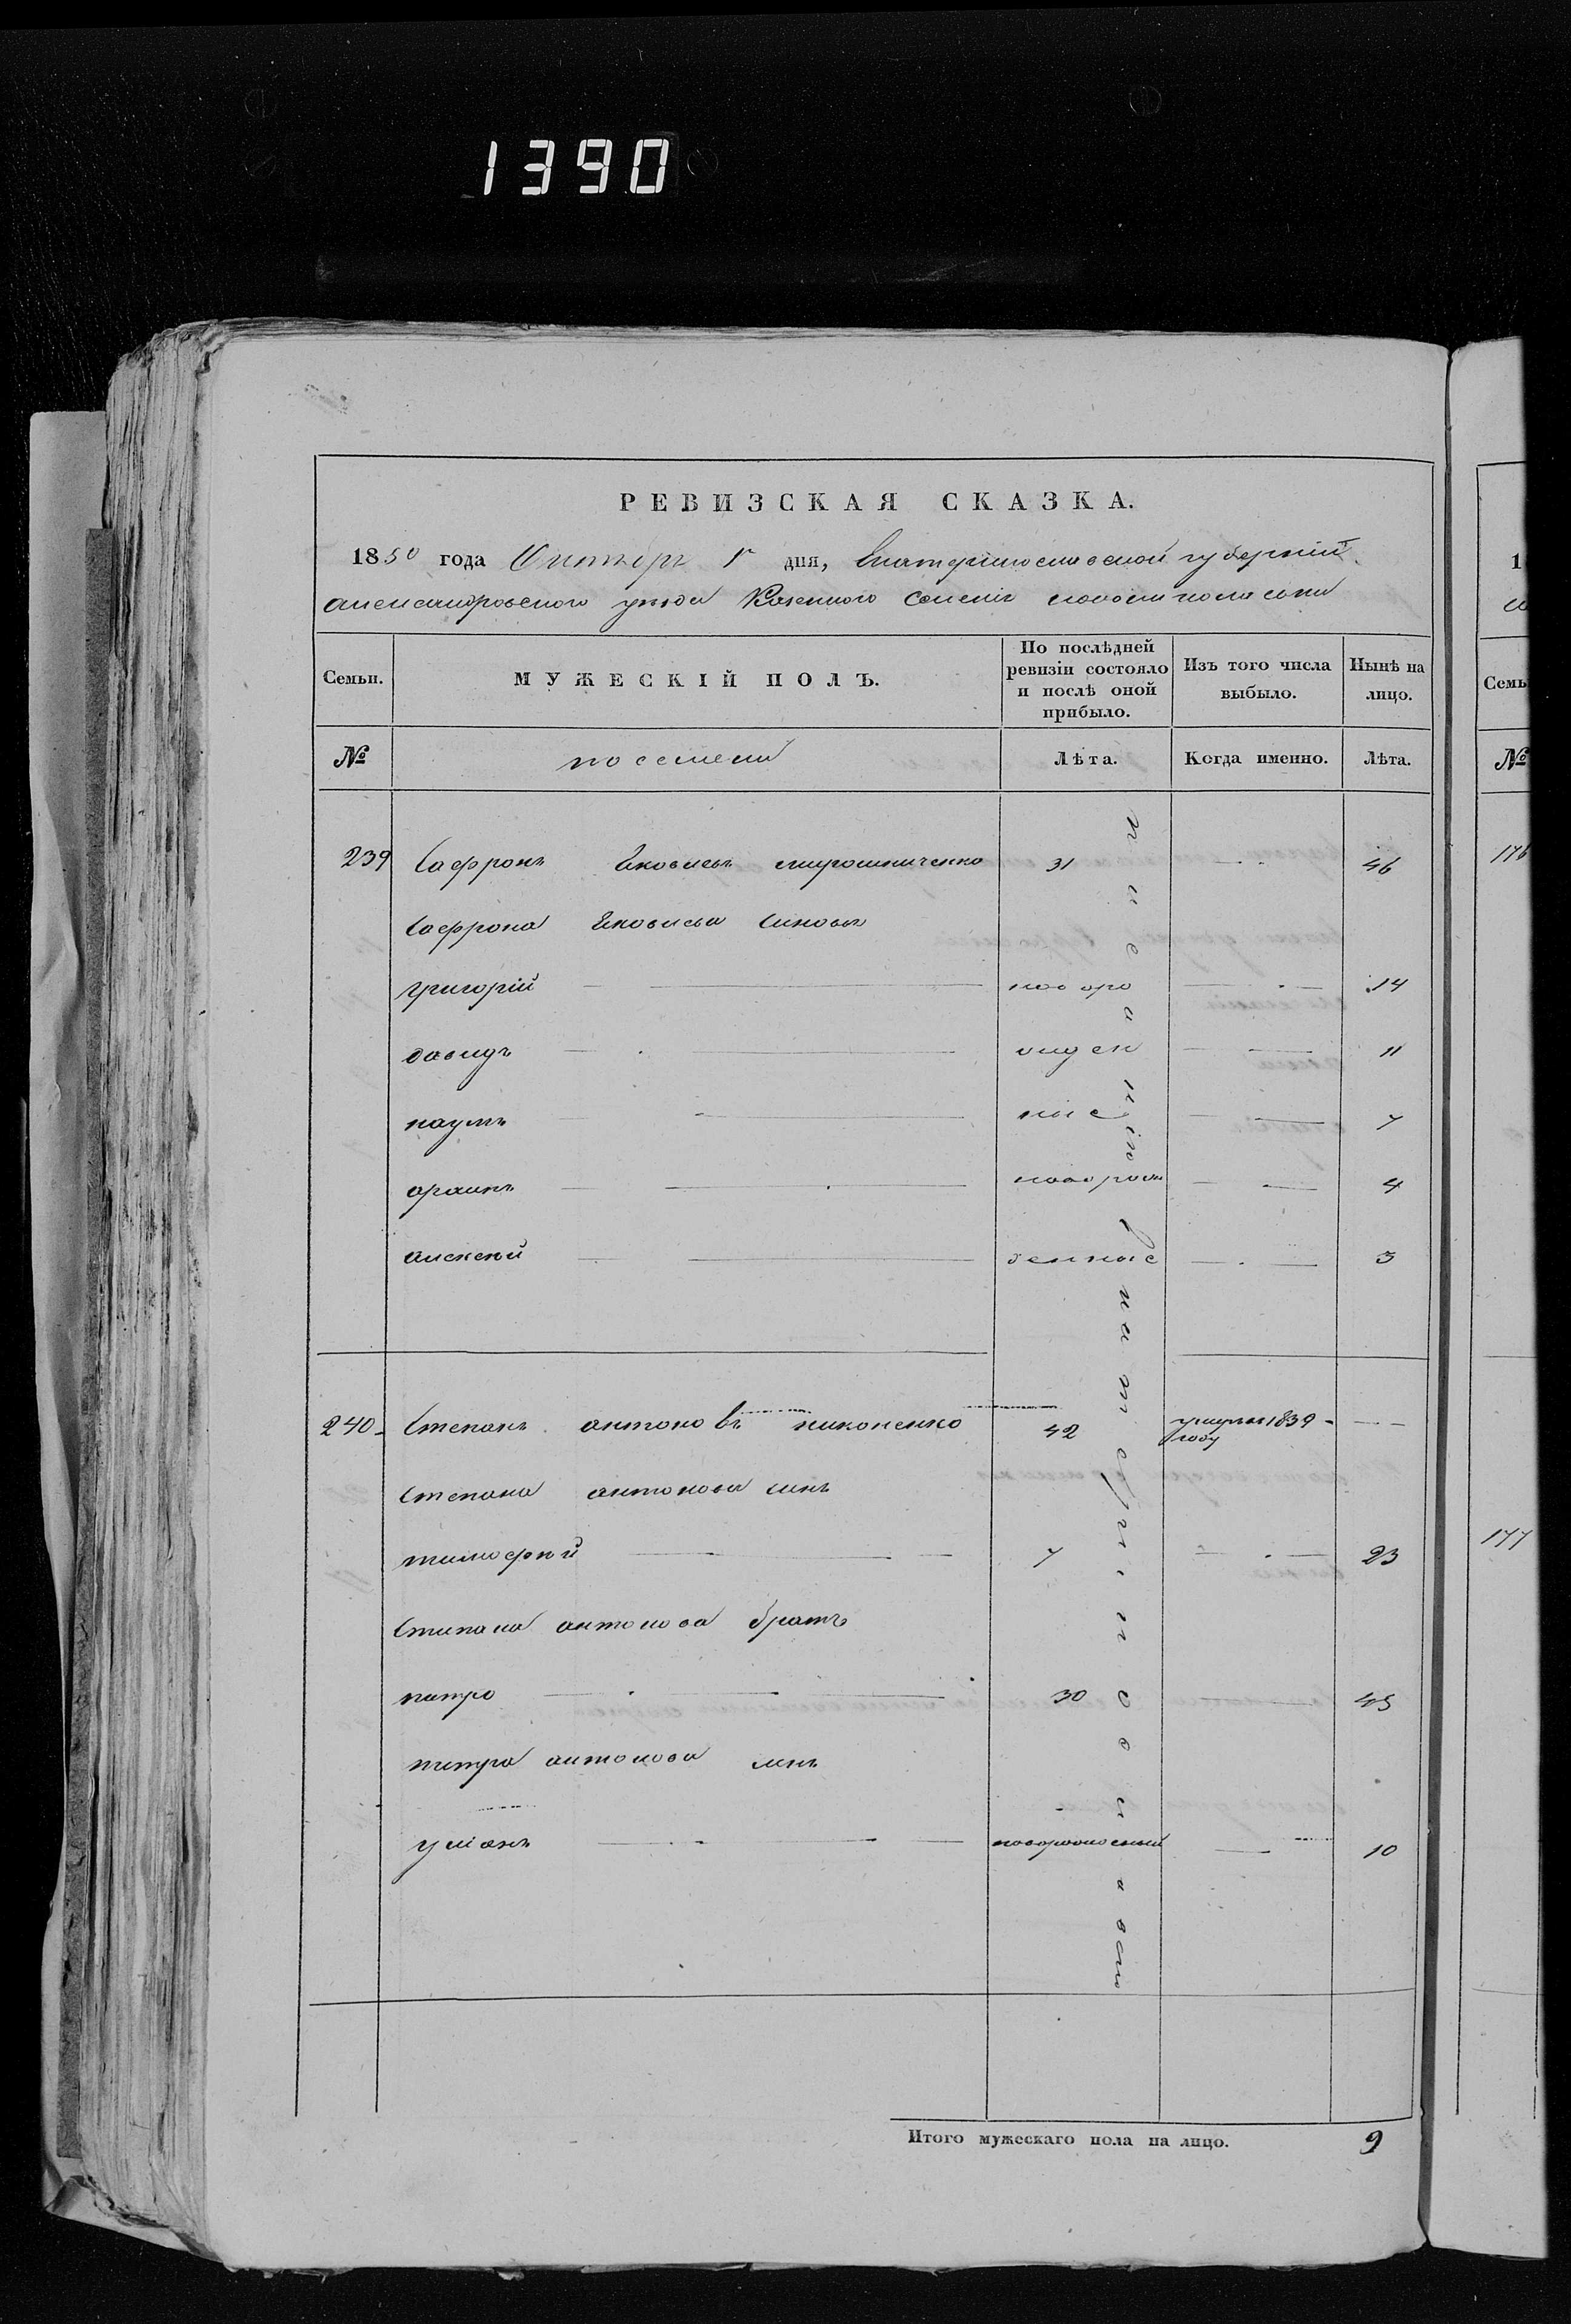 1390
РЕВИЗСКАЯ СКАЗКА.
1850 года Октября 1 дня, Екатеринославской губерніи
александровского уезда Казенного Селенія новониколаевки
Семьи.
МУЖЕСКІЙ ПОЛЪ.
По послѣдней ревизіи состояло и послѣ оной прибыло.
Изъ того числа выбыло.
Нынѣ на лицо.
№
поселени
Лѣта.
Когда именно.
Лѣта.
239 Сафронъ Яковлевъ мирошниченко 31 46
Сафрона Яковлева Синовья
григорій новоро 14
давидъ жден 11
наумъ ные 7
новорож 4
алексей денные 3
240 Степанъ антоновъ никоненко 42 умеръ 1839 году
Степана антонова синъ
тимофей 7 23
Степана антонова братъ
петро 30 45
петра антонова синъ
уліянъ новорожденный 10
Итого мужескаго пола на лицо. 9
1
Семь
№
176
177